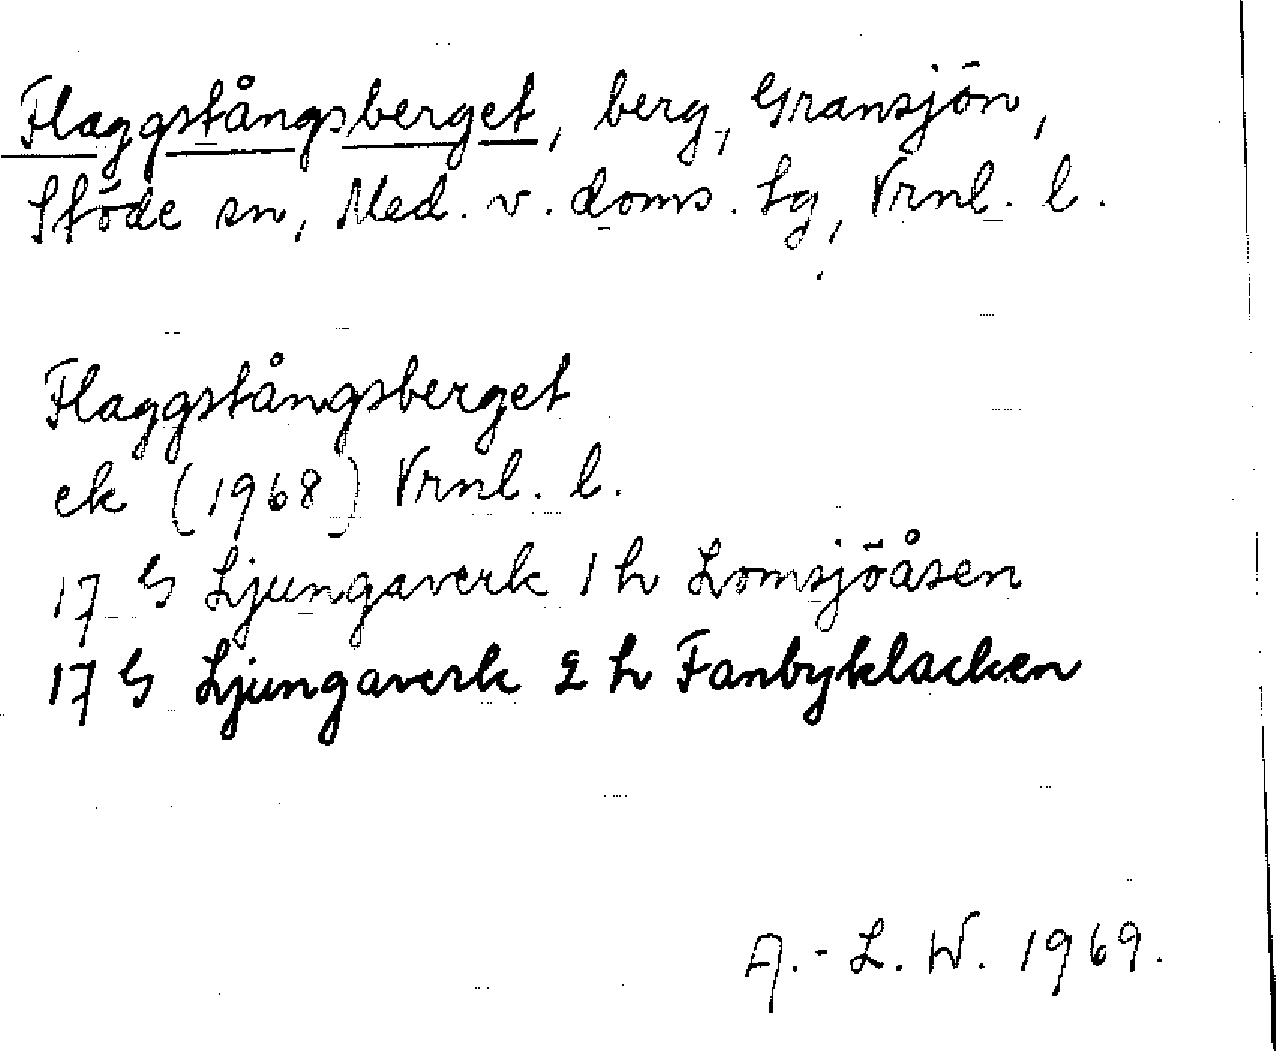 Flaggstångsberget, berg, Gransjön,
Stöde sn, Med. v. doms. tg, Vrnl. l.
Flaggstångsberget
ek (1968) Vrnl. l.
17 G Ljungaverk 1 h Lomsjöåsen
17 G Ljungaverk 2 h Fanbyklacken
A.-L. W. 1969.